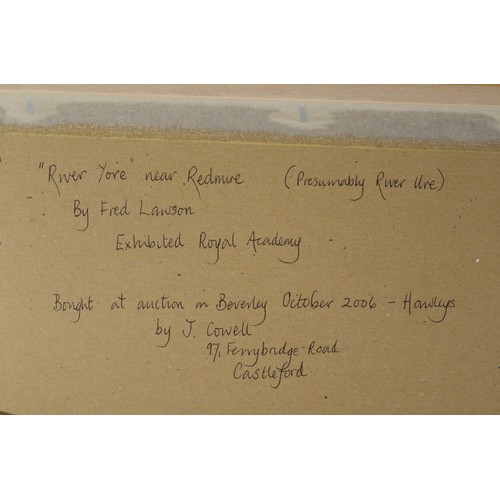 "River Yore" near Redmire (Presumably River Ure)
By Fred Lawson
Exhibited Royal Academy
Bought at auction in Beverley October 2006 - Hawleys
by J. Cowell
97, Ferrybridge Road
Castleford